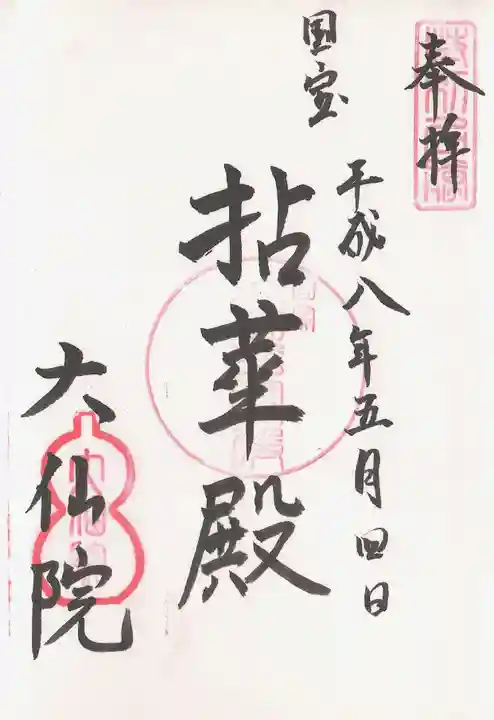 奉拝
国宝
平成八年五月四日
拈華殿
大仙院